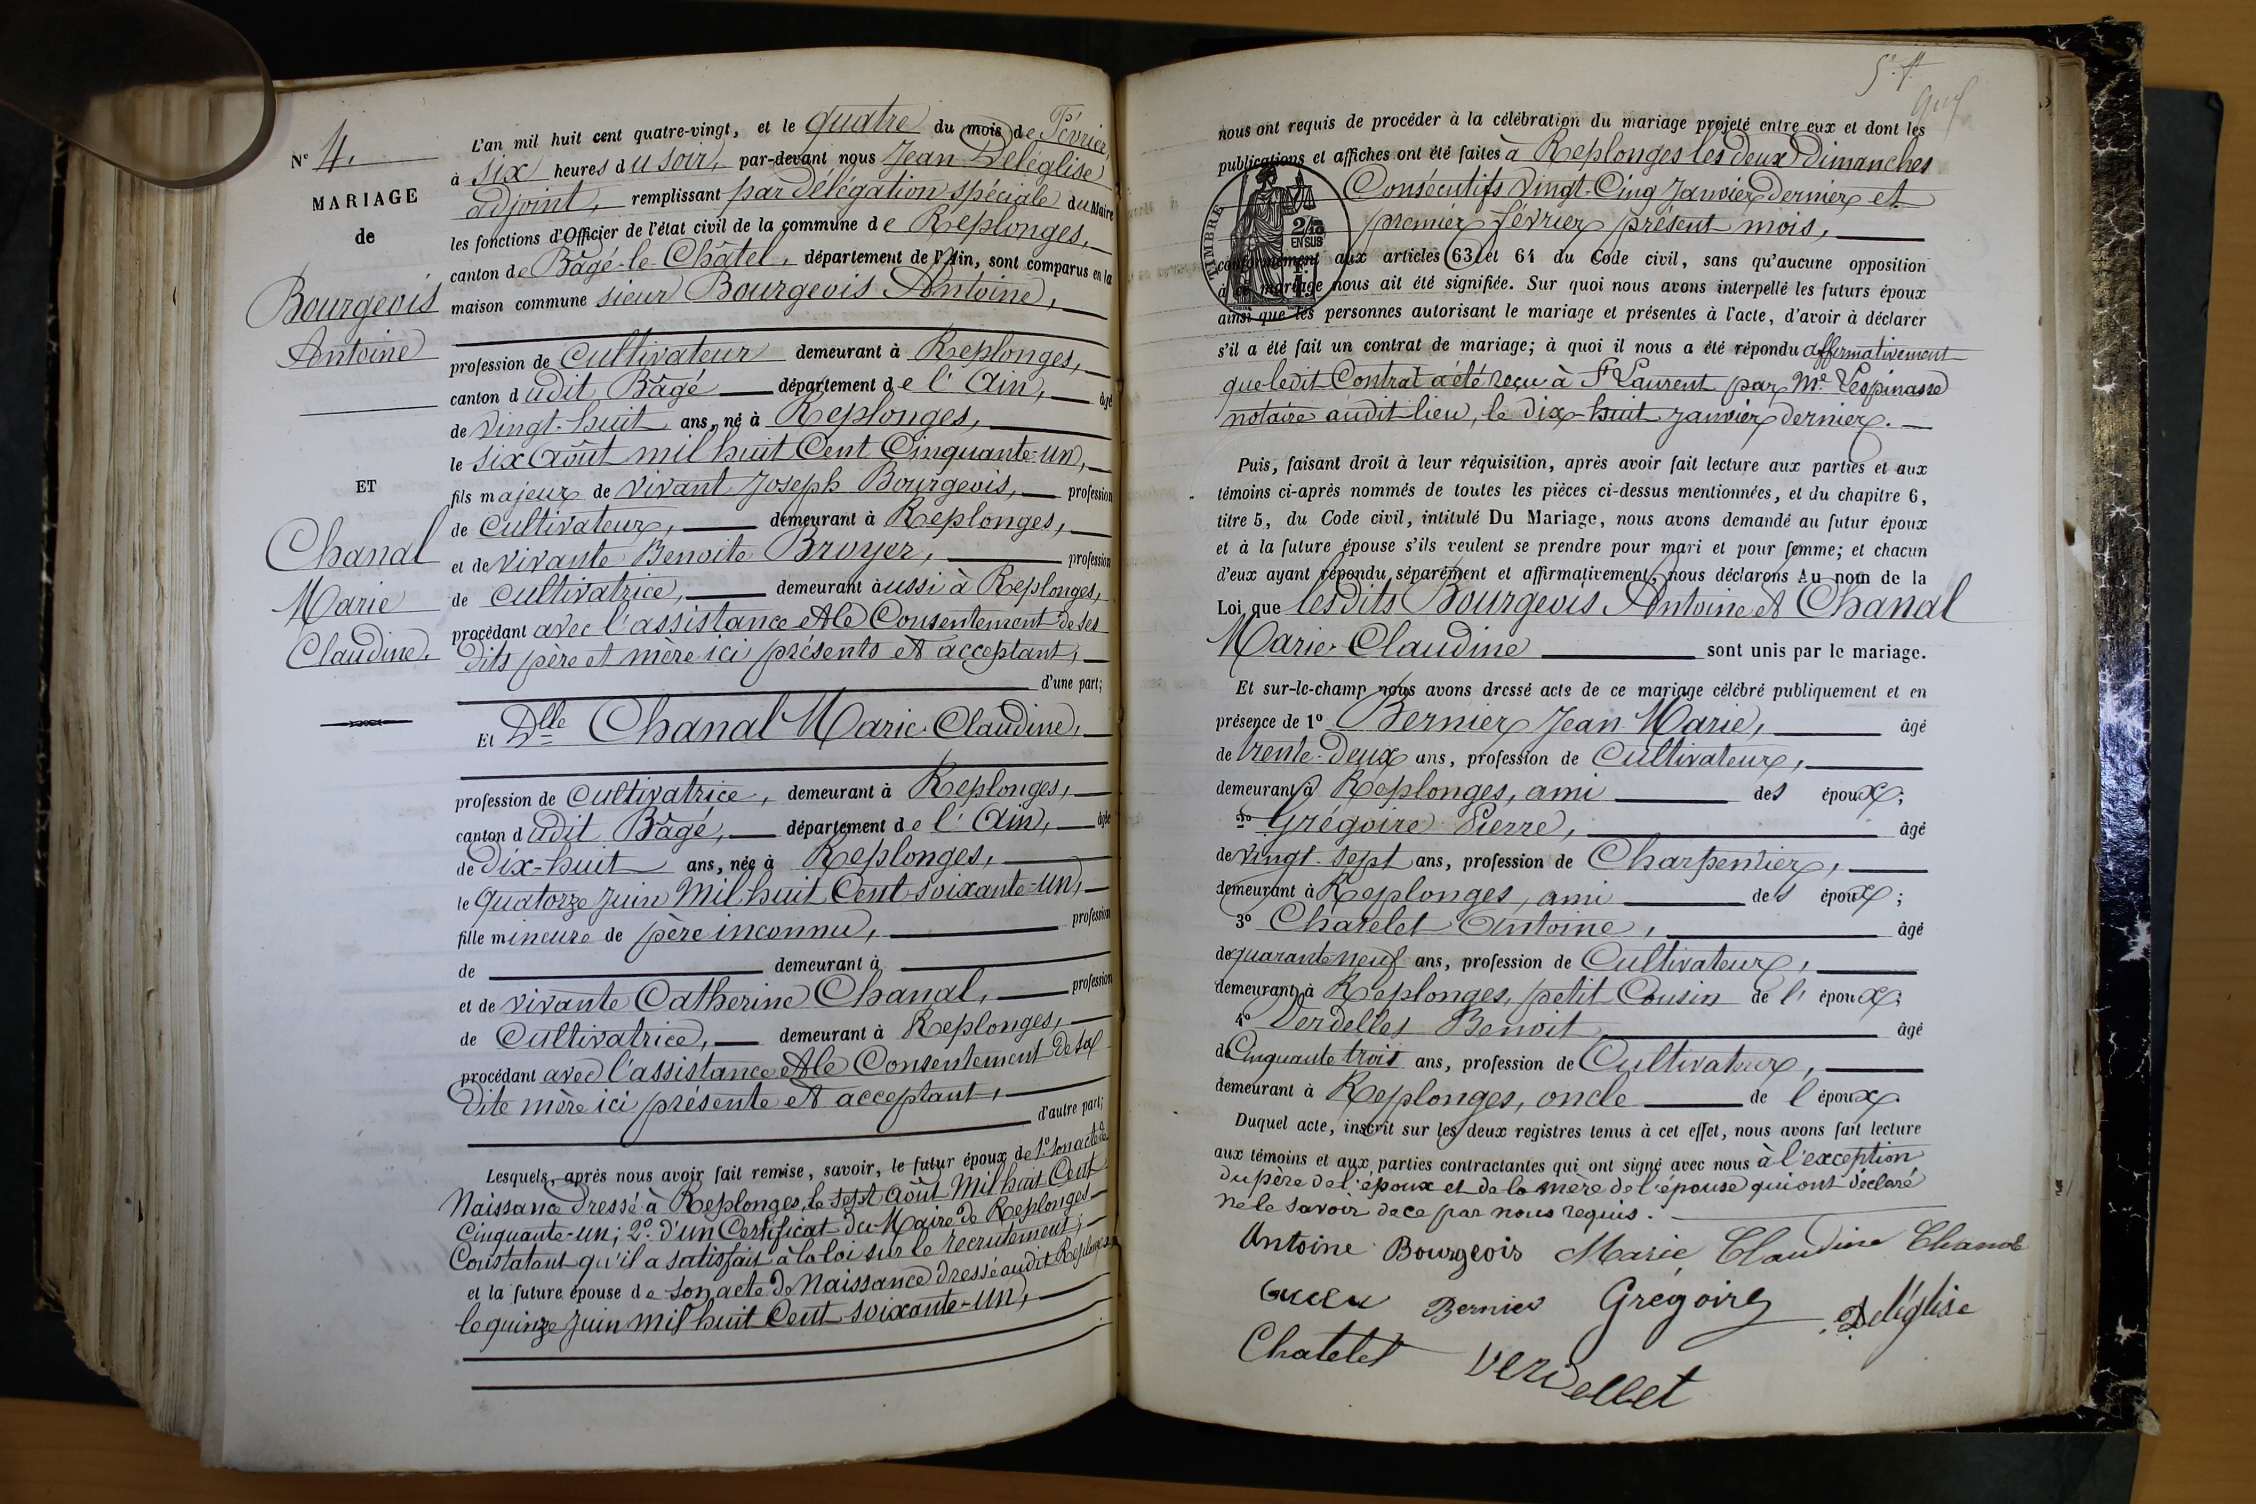 N° 4.
MARIAGE
de
Bourgeois
Antoine
ET
Chanal
Marie
Claudine.
L'an mil huit cent quatre-vingt, et le quatre du mois de Février,
à six heures du soir, par-devant nous Jean Deléglise
adjoint, remplissant par délégation spéciale du Maire
les fonctions d'Officier de l'état civil de la commune de Replonges,
canton de Bâgé-le-Châtel, département de l'Ain, sont comparus en la
maison commune sieur Bourgeois Antoine,
profession de Cultivateur demeurant à Replonges,
canton dudit Bâgé département de l'Ain, âgé
de vingt-huit ans, né à Replonges,
le six Août mil huit Cent Cinquante-un,
fils majeur de vivant Joseph Bourgeois, profession
de Cultivateur, demeurant à Replonges,
et de vivante Benoite Broyer, profession
de cultivatrice, demeurant aussi à Replonges,
procédant avec l'assistance et le Consentement de ses
dits père et mère ici présents et acceptant,
d'une part;
Et Dlle Chanal Marie Claudine,
profession de Cultivatrice, demeurant à Replonges,
canton dudit Bâgé, département de l'Ain, âgée
de Dix-huit ans, née à Replonges,
le quatorze juin Mil huit Cent soixante-un,
fille mineure de père inconnu, profession
de demeurant à
et de vivante Catherine Chanal, profession
de Cultivatrice, demeurant à Replonges,
procédant avec l'assistance et le Consentement de sa
dite mère ici présente et acceptant,
d'autre part;
Lesquels, après nous avoir fait remise, savoir, le futur époux de 1° son acte de
Naissance dressé à Replonges, le sept août Mil huit Cent
Cinquante-un; 2° d'un Certificat du Maire de Replonges
Constatant qu'il a satisfait à la loi sur le recrutement;
et la future épouse de son acte de Naissance dressé audit Replonges
le quinze juin mil huit Cent soixante-un,
nous ont requis de procéder à la célébration du mariage projeté entre eux et dont les
publications et affiches ont été faites à Replonges les deux Dimanches
Consécutifs vingt-Cinq Janvier dernier et
premier février présent mois,
TIMBRE
2/10
EN SUS
conformément aux articles 63 et 64 du Code civil, sans qu'aucune opposition
à ce mariage nous ait été signifiée. Sur quoi nous avons interpellé les futurs époux
ainsi que les personnes autorisant le mariage et présentes à l'acte, d'avoir à déclarer
s'il a été fait un contrat de mariage; à quoi il nous a été répondu affirmativement
que ledit Contrat a été reçu à St Laurent par Me Lespinasse
notaire audit lieu, le dix-huit janvier dernier.
Puis, faisant droit à leur réquisition, après avoir fait lecture aux parties et aux
témoins ci-après nommés de toutes les pièces ci-dessus mentionnées, et du chapitre 6,
titre 5, du Code civil, intitulé Du Mariage, nous avons demandé au futur époux
et à la future épouse s'ils veulent se prendre pour mari et pour femme; et chacun
d'eux ayant répondu séparément et affirmativement, nous déclarons Au nom de la
Loi que lesdits Bourgeois Antoine et Chanal
Marie-Claudine sont unis par le mariage.
Et sur-le-champ nous avons dressé acte de ce mariage célébré publiquement et en
présence de 1° Bernier Jean Marie, âgé
de trente-deux ans, profession de Cultivateur,
demeurant à Replonges, ami des époux;
2° Grégoire Pierre, âgé
de vingt-sept ans, profession de Charpentier,
demeurant à Replonges, ami des époux;
3° Chatelet Antoine, âgé
de quarante neuf ans, profession de Cultivateur,
demeurant à Replonges, petit Cousin de l'époux;
4° Verdellet Benoit âgé
de Cinquante trois ans, profession de Cultivateur,
demeurant à Replonges, oncle de l'époux.
Duquel acte, inscrit sur les deux registres tenus à cet effet, nous avons fait lecture
aux témoins et aux parties contractantes qui ont signé avec nous à l'exception
du père de l'époux et de la mère de l'épouse qui ont déclaré
ne le savoir de ce par nous requis.
Antoine Bourgeois Marie Claudine Chanal
Bernier Grégoire Deléglise
Chatelet Verdellet